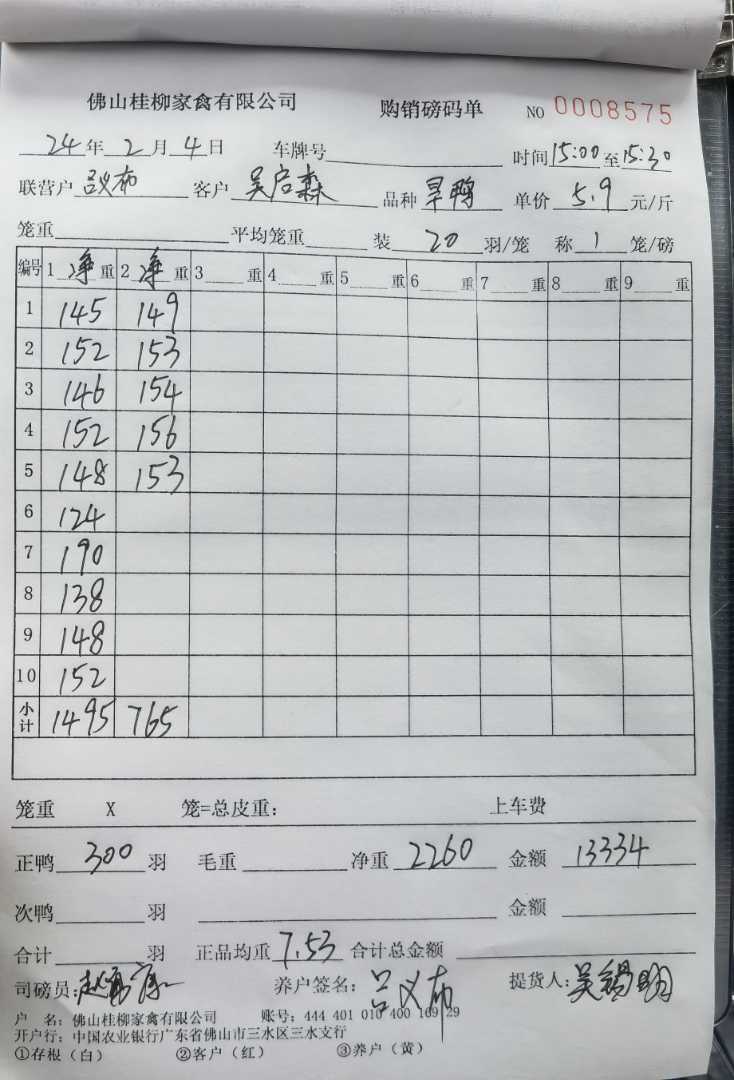 佛山桂柳家禽有限公司 购销磅码单 NO 0008575
24年2月4日 车牌号 时间15:00至15:30
联营户 吕义布 客户 吴启森 品种 旱鸭 单价 5.9 元/斤
笼重 平均笼重 装 20 羽/笼 称 1 笼/磅
编号 1 净 重 2 净 重 3 重 4 重 5 重 6 重 7 重 8 重 9 重
1 145 149
2 152 153
3 146 154
4 152 156
5 148 153
6 124
7 190
8 138
9 148
10 152
小计 1495 765
笼重 X 笼=总皮重: 上车费
正鸭 300 羽 毛重 净重 2260 金额 13334
次鸭 羽 金额
合计 羽 正品均重 7.53 合计总金额
司磅员: 养户签名: 吕义布 提货人: 吴锡明
户 名: 佛山桂柳家禽有限公司 账号: 444 401 010 400 169 29
开户行: 中国农业银行广东省佛山市三水区三水支行
①存根（白） ②客户（红） ③养户（黄）